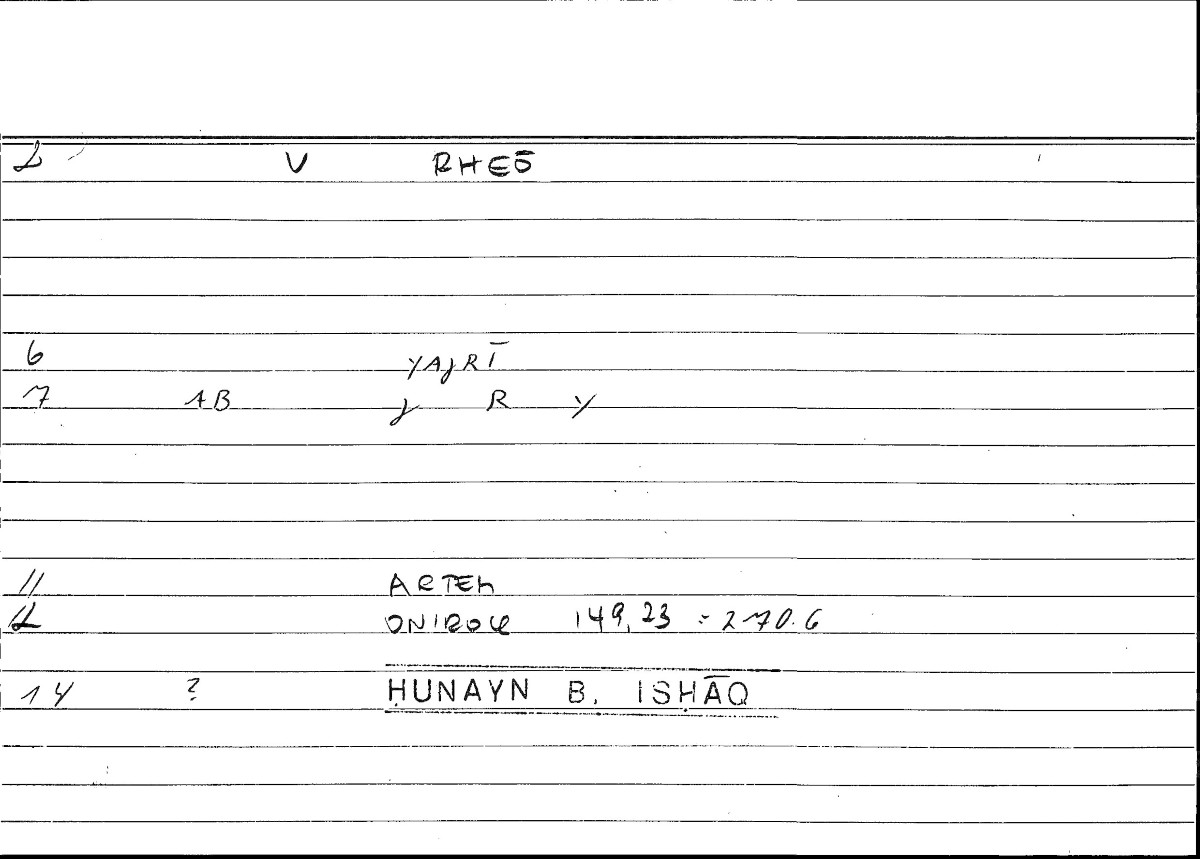 2 V RHEŌ
6 YAJRĪ
7 1B J R Y
11 ARTEM
12 ONIROCR 149,23 = 270.6
14 ? ḤUNAYN B. ISḤĀQ